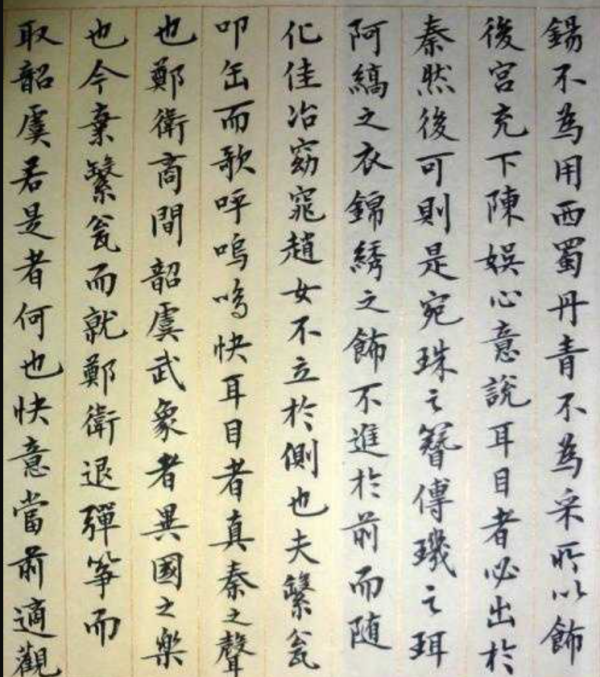 鍚不為用西蜀丹青不為采所以飾
後宮充下陳娛心意說耳目者必出於
秦然後可則是宛珠之簪傅璣之珥
阿縞之衣錦綉之飾不進於前而随
化佳冶窈窕趙女不立於側也夫繫瓮
叩缶而歌呼嗚嗚快耳目者真秦之聲
也鄭衛商間韶虞武象者異國之樂
也今棄繫瓮而就鄭衛退彈箏而
取韶虞若是者何也快意當前適觀